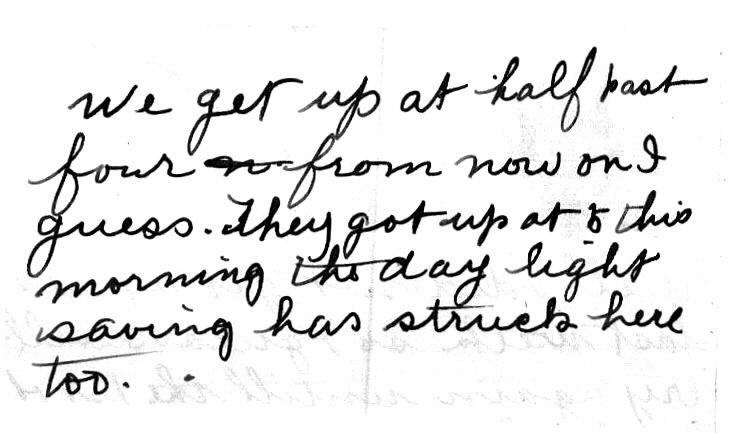 We get up at half past
four from now on I
guess. They got up at 5 this
morning the day light
saving has struck here
too.